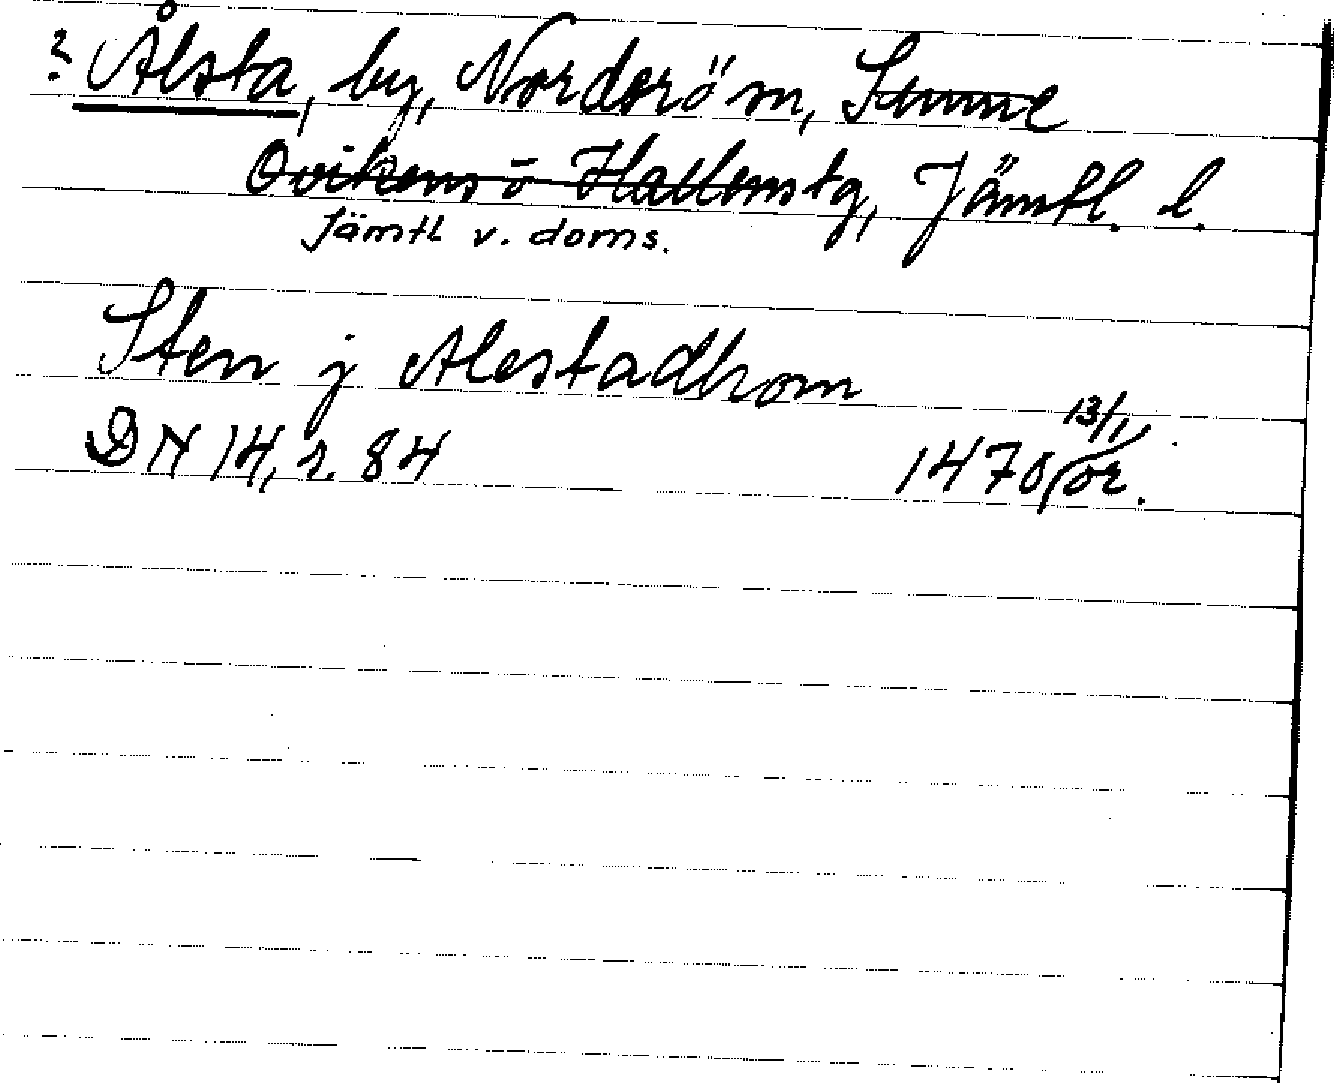 ? Ålsta, by, Norderöm, Sunne
Ovikens o Hallens tg, Jämtl. l.
Jämtl v. doms.
Sten j Alestadhom
13/1
DN 14, s. 84 1470 or.